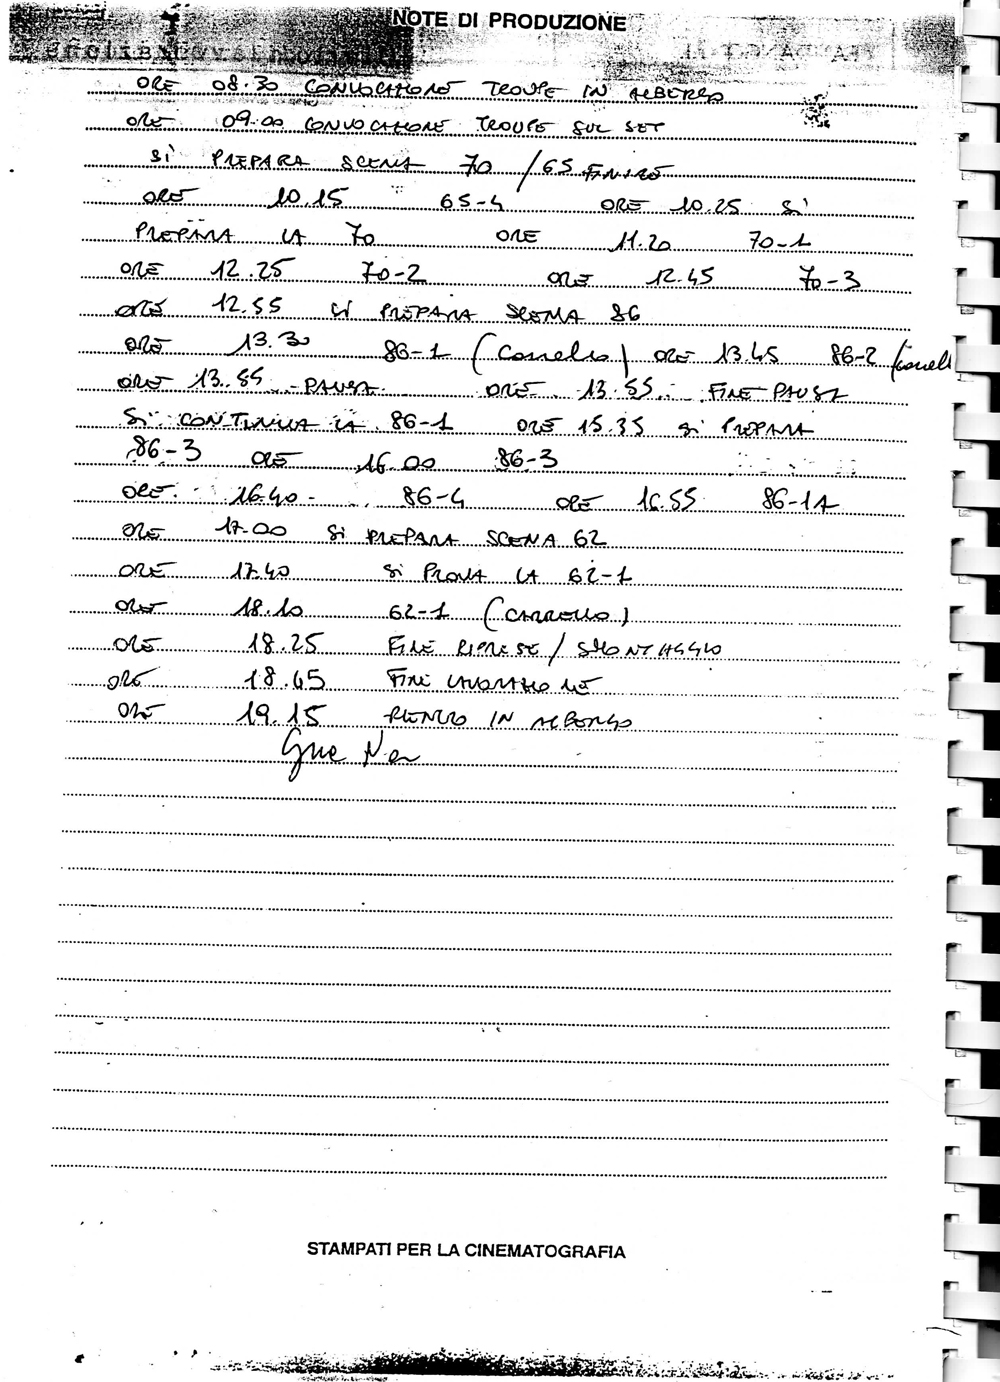 NOTE DI PRODUZIONE
ORE 08.30 CONVOCAZIONE TROUPE IN ALBERGO
ORE 09.00 CONVOCAZIONE TROUPE SUL SET
SI PREPARA SCENA 70 / 65 FINIRE
ORE 10.15 65-4 ORE 10.25 SI
PREPARA LA 70 ORE 11.20 70-1
ORE 12.25 70-2 ORE 12.45 70-3
ORE 12.55 SI PREPARA SCENA 86
ORE 13.30 86-1 (Carrello) ORE 13.45 86-2 (Carrell
ORE 13.55 PAUSA ORE 13.55 FINE PAUSA
SI CONTINUA LA 86-1 ORE 15.35 SI PREPARA
86-3 ORE 16.00 86-3
ORE 16.40 86-4 ORE 16.55 86-1A
ORE 17.00 SI PREPARA SCENA 62
ORE 17.40 SI PROVA LA 62-1
ORE 18.10 62-1 (CARRELLO)
ORE 18.25 FINE RIPRESE / SMONTAGGIO
ORE 18.45 FINE LAVORAZIONE
ORE 19.15 RIENTRO IN ALBERGO
STAMPATI PER LA CINEMATOGRAFIA